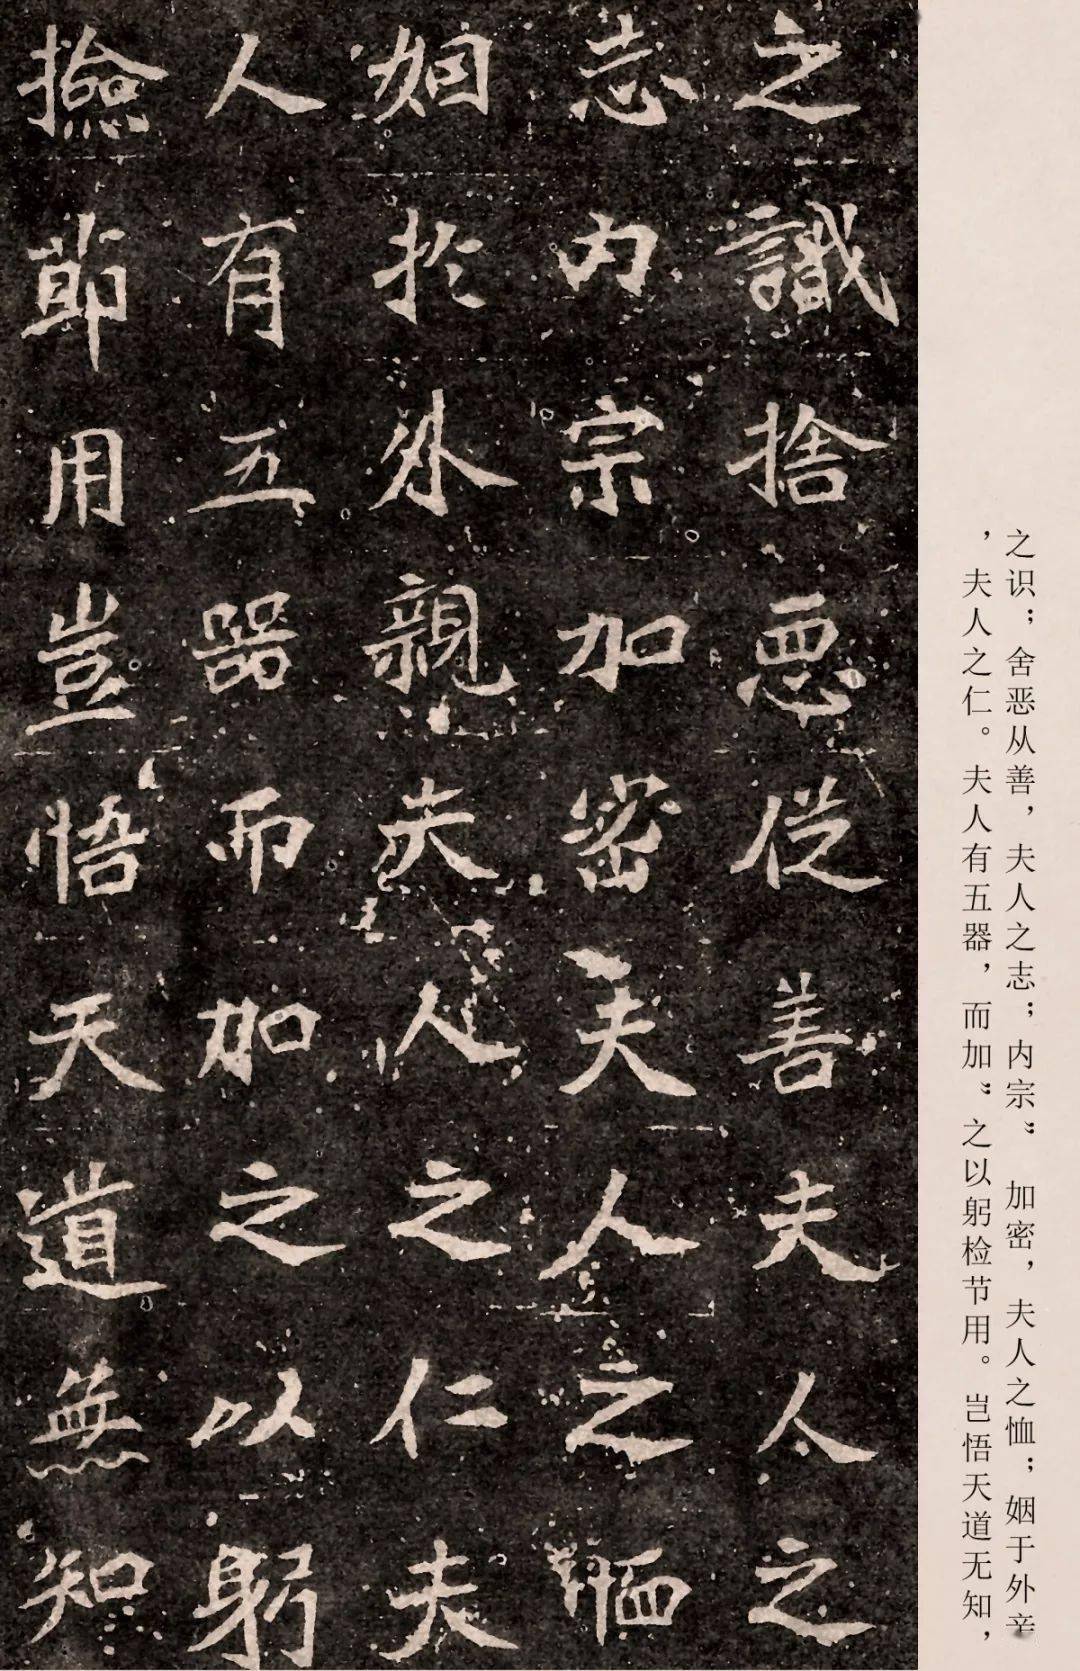 之識捨惡從善夫人之
志内宗加密夫人之恤
姻於外親夫人之仁夫
人有五器而加之以躬
撿節用豈悟天道無知
之识；舍恶从善，夫人之志；内宗〞加密，夫人之恤；姻于外亲
，夫人之仁。夫人有五器，而加〞之以躬检节用。岂悟天道无知，